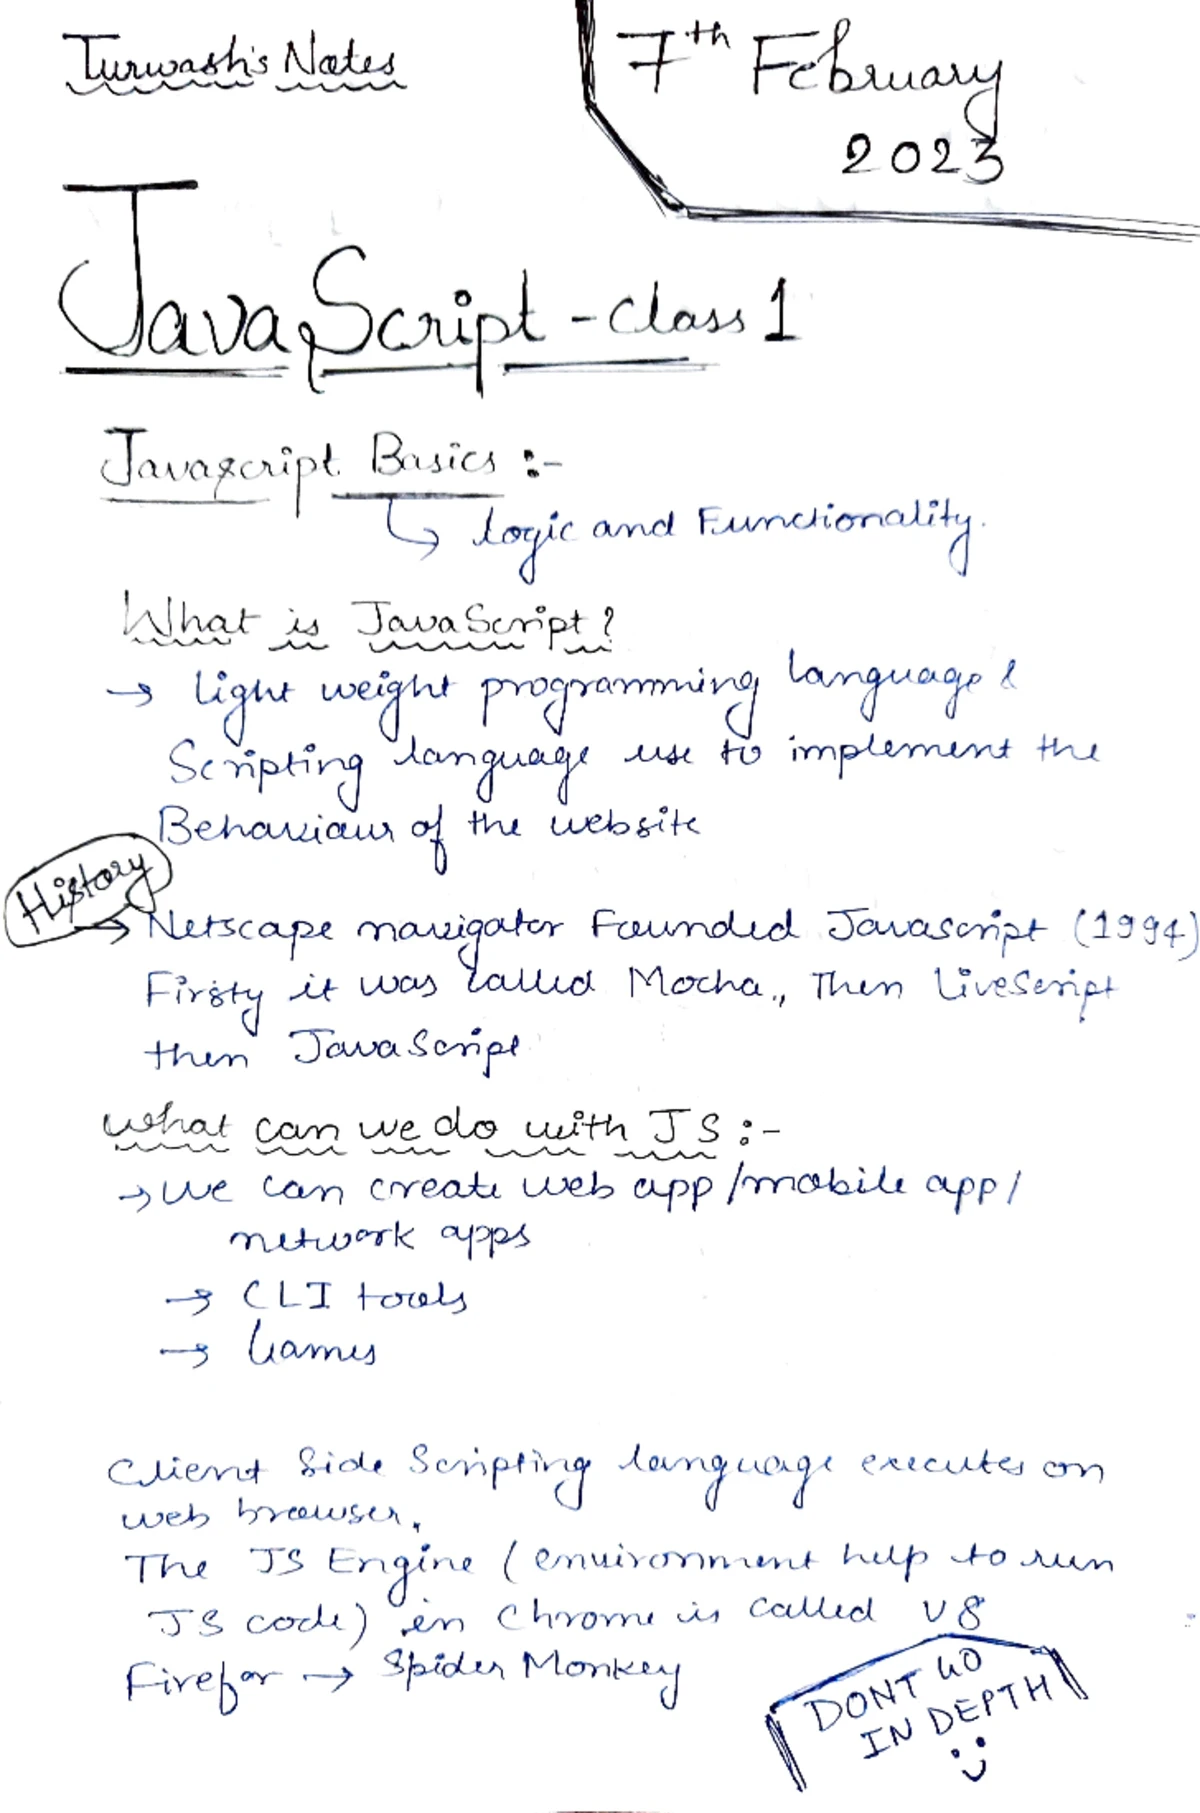 Turwash's Notes
7th February
2023
JavaScript - Class 1
Javascript Basics :-
↳ Logic and Functionality.
What is JavaScript?
→ Light weight programming language &
Scripting language use to implement the
Behaviour of the website
History
→ Netscape navigator Founded Javascript (1994)
Firsty it was called Mocha., Then LiveScript
then JavaScript
What can we do with JS :-
→ We can create web app/mobile app/
network apps
→ CLI tools
→ Games
Client Side Scripting language executes on
web browser.
The JS Engine (environment help to run
JS code) in Chrome is called V8
Firefox → Spider Monkey
DONT GO
IN DEPTH